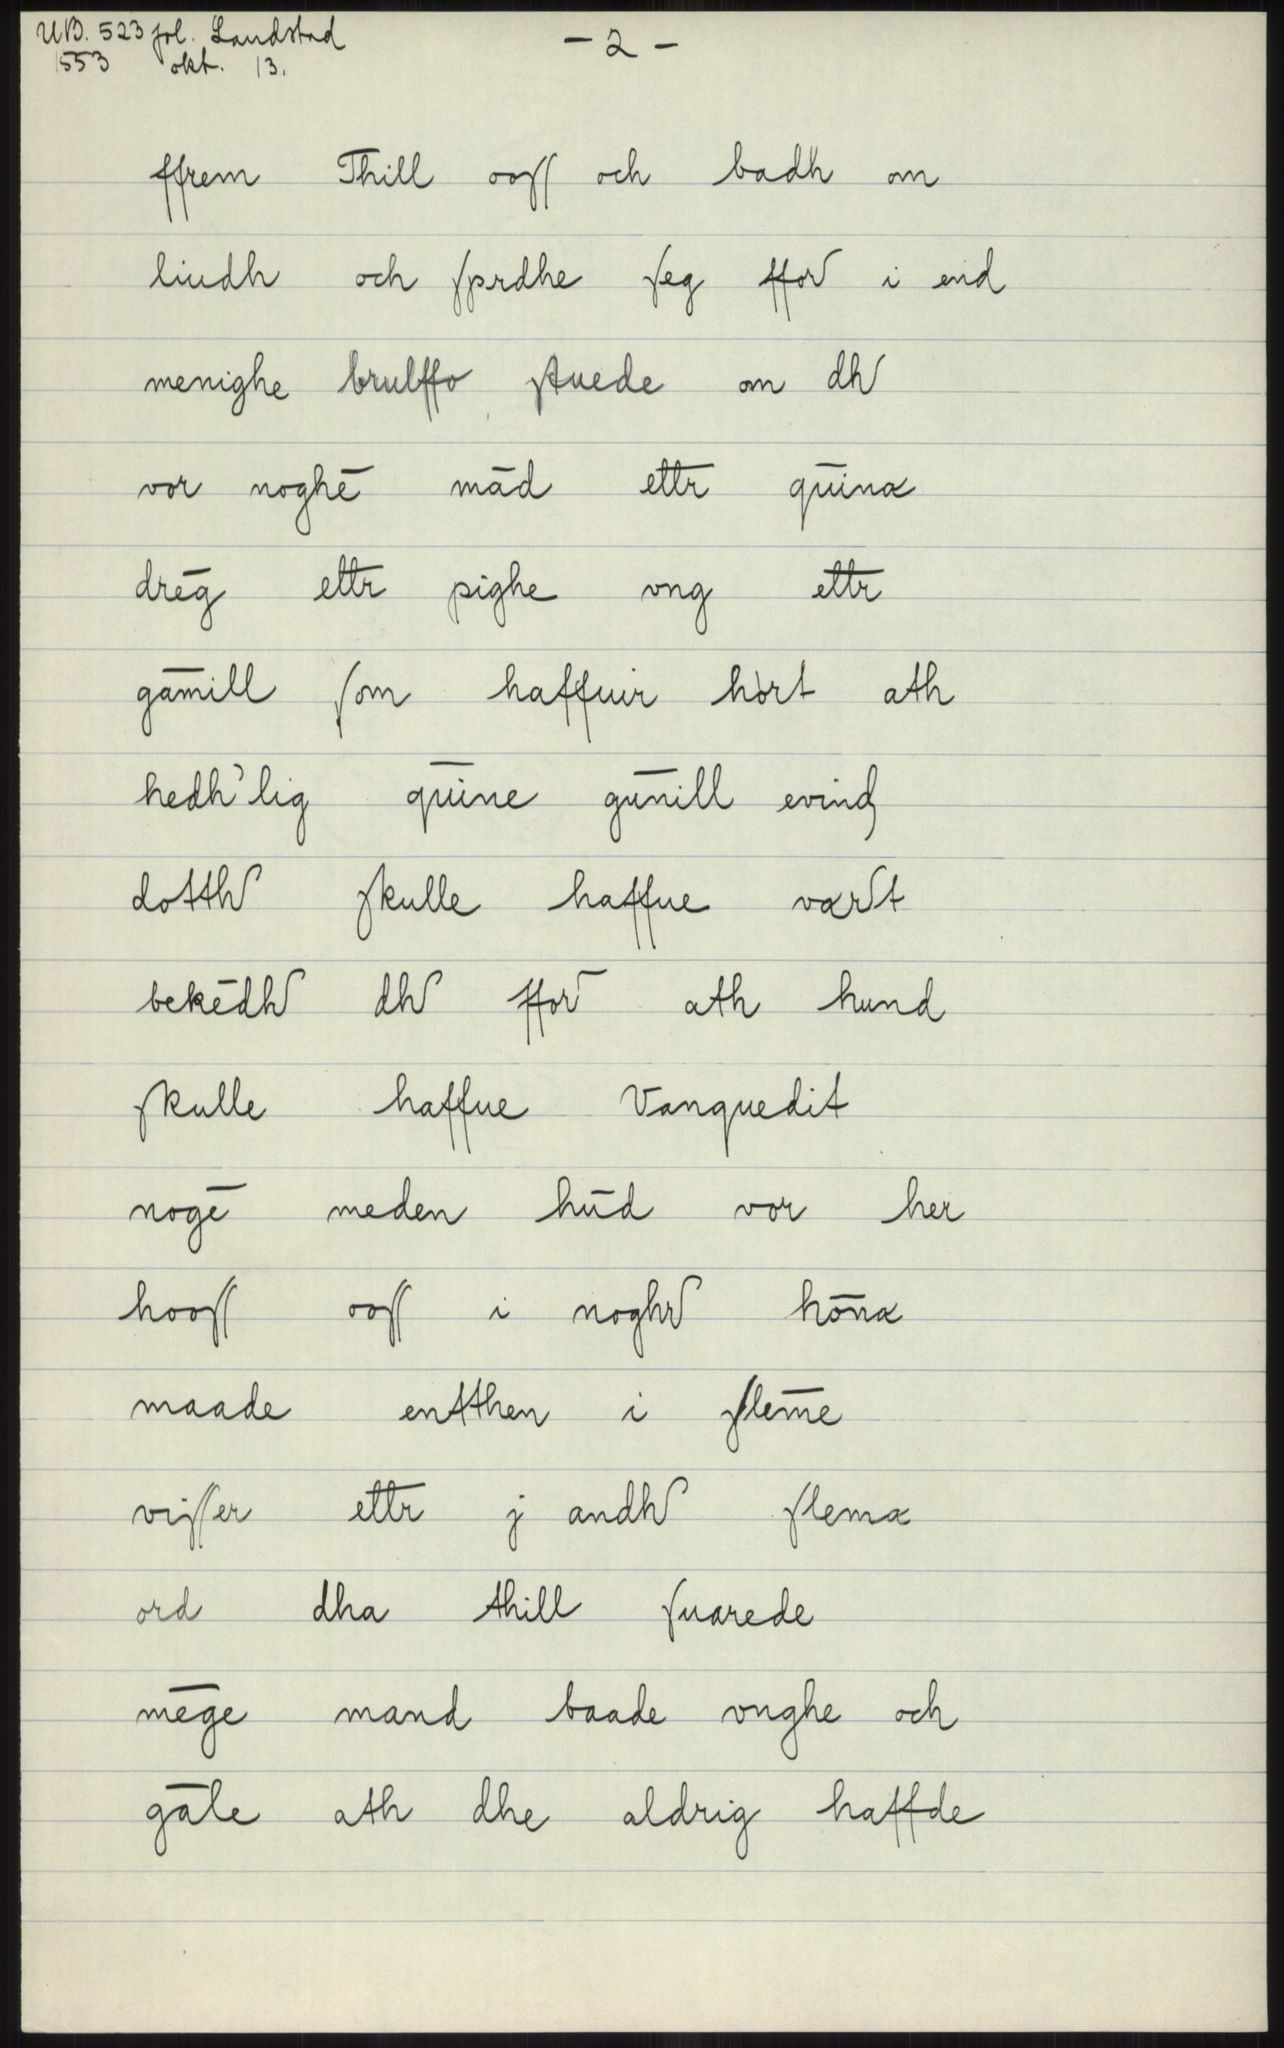 UB. 523 fol. Landstad
- 2 -
1553 okt. 13.
ffrem Thill ooss och badh om
liudh och sprdhe seg ffor i end
menighe brulffo stuede om dh
vor noghē mād ettr̄ qūinæ
drēg ettr̄ pighe vng ettr̄
gāmill som haffuir hört ath
hedh'lig qūine gūnill evind
dotth skulle haffue værst
bekēdh dh ffor ath hund
skulle haffue Vanquedit
nogē meden hūd vor her
hooss ooss i noghr hōnæ
maade entthen i slem̄e
visser ettr̄ j andh slemæ
ord dha thill suarede
mēge mand baade vnghe och
gāle ath dhe aldrig haffde